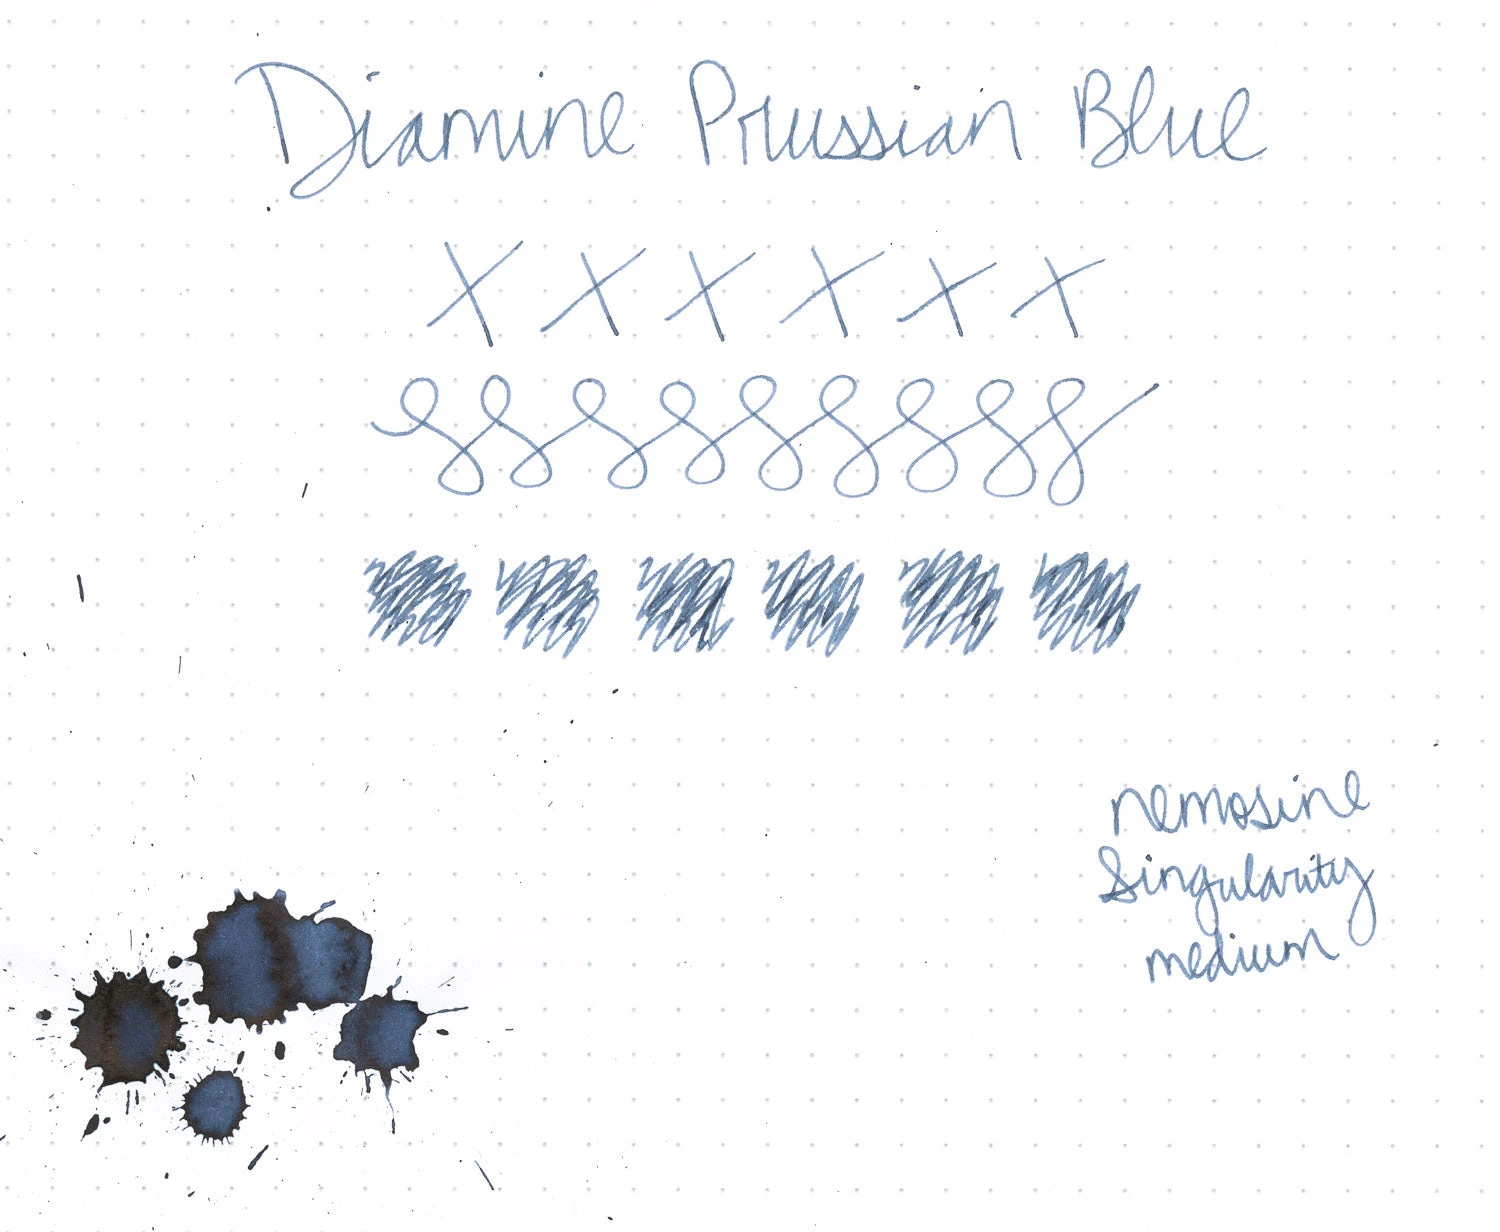 Diamine Prussian Blue
x x x x x x
nemosine
Singularity
medium